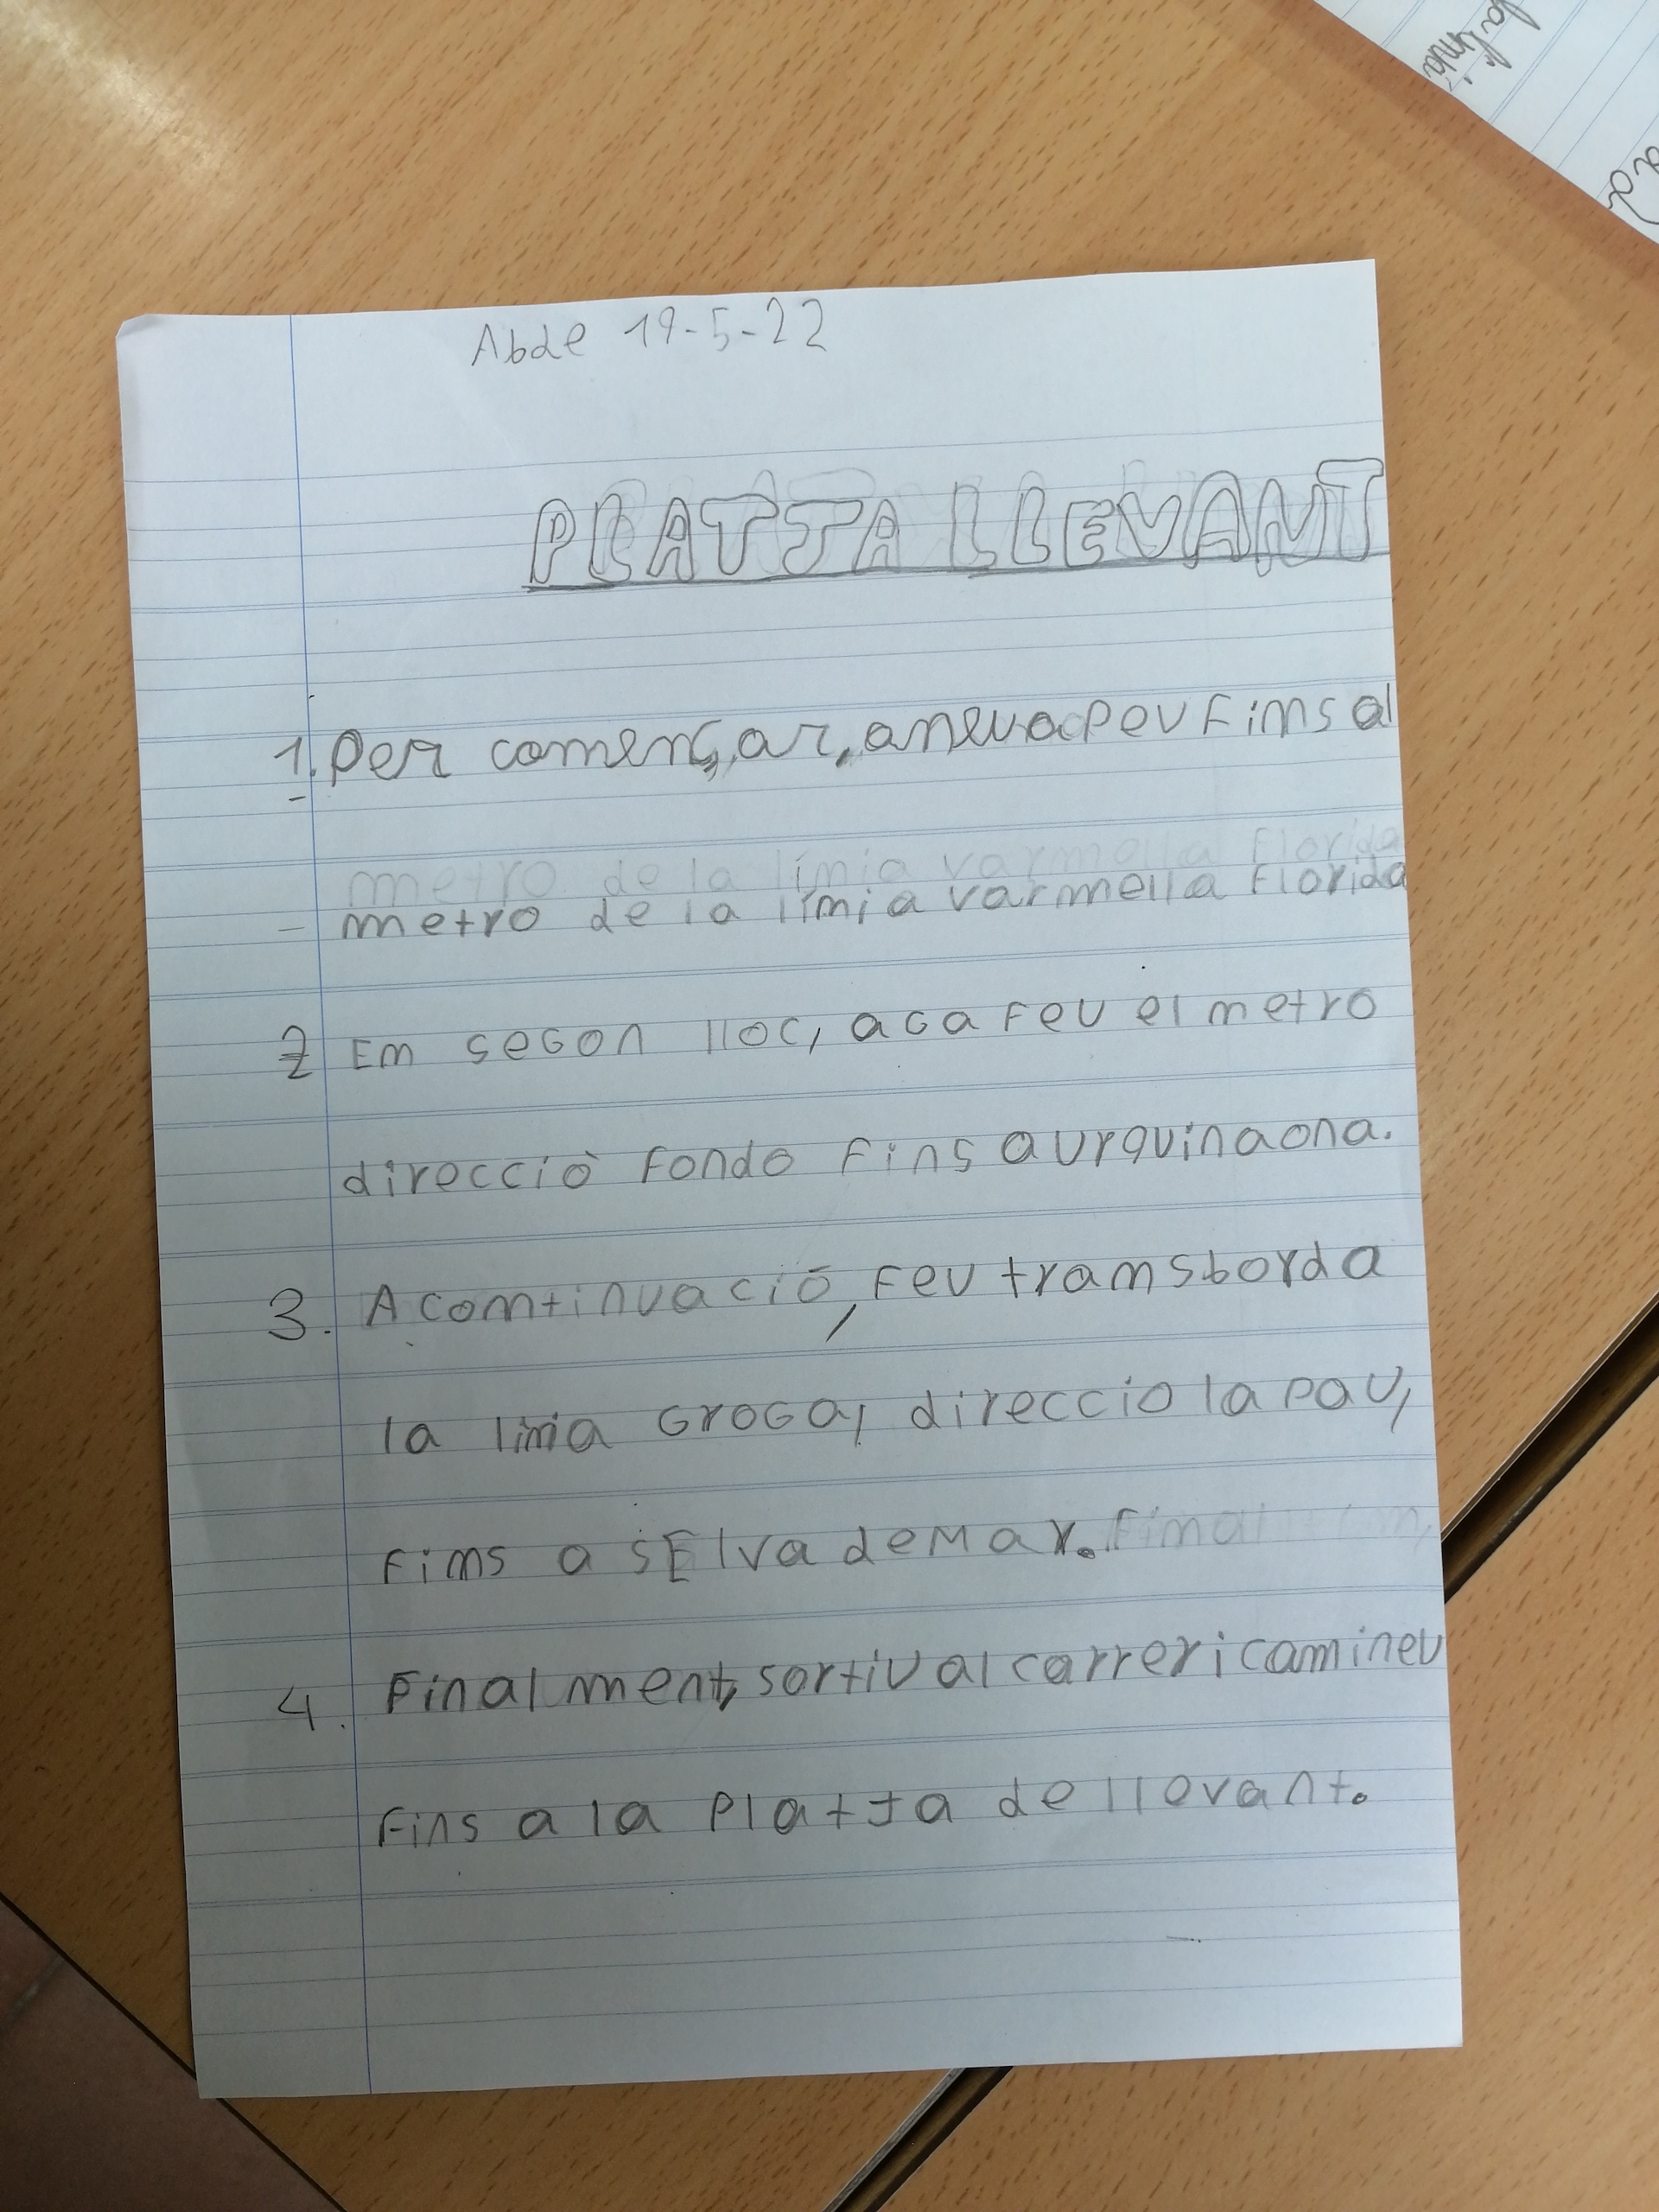 Abde 19-5-22
PLATJA LLEVANT
1. Per començar, aneu a peu fims al
metro de la límia varmella Florida
2 Em segon lloc, agafeu el metro
direcciò fondo fins a urquinaona.
3. A comtinuació, feu tramsborda
la límia groga, direccio la pau,
fims a sElva de Mar.
4. Finalment, sortiu al carrer i camineu
fins a la platja de llevant.
la línia